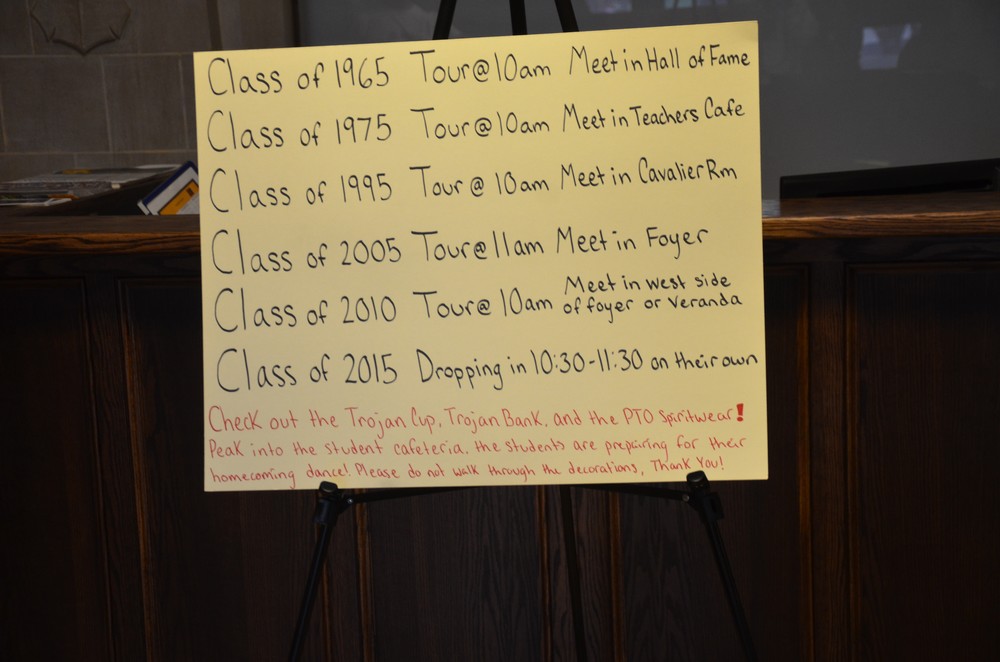 Class of 1965 Tour@10am Meet in Hall of Fame
Class of 1975 Tour@10am Meet in Teachers Cafe
Class of 1995 Tour @ 10am Meet in Cavalier Rm
Class of 2005 Tour@11am Meet in Foyer
Class of 2010 Tour@ 10am Meet in west side of foyer or veranda
Class of 2015 Dropping in 10:30-11:30 on their own
Check out the Trojan Cup, Trojan Bank, and the PTO Spiritwear!
Peak into the student cafeteria. the students are preparing for their
homecoming dance! Please do not walk through the decorations, Thank You!